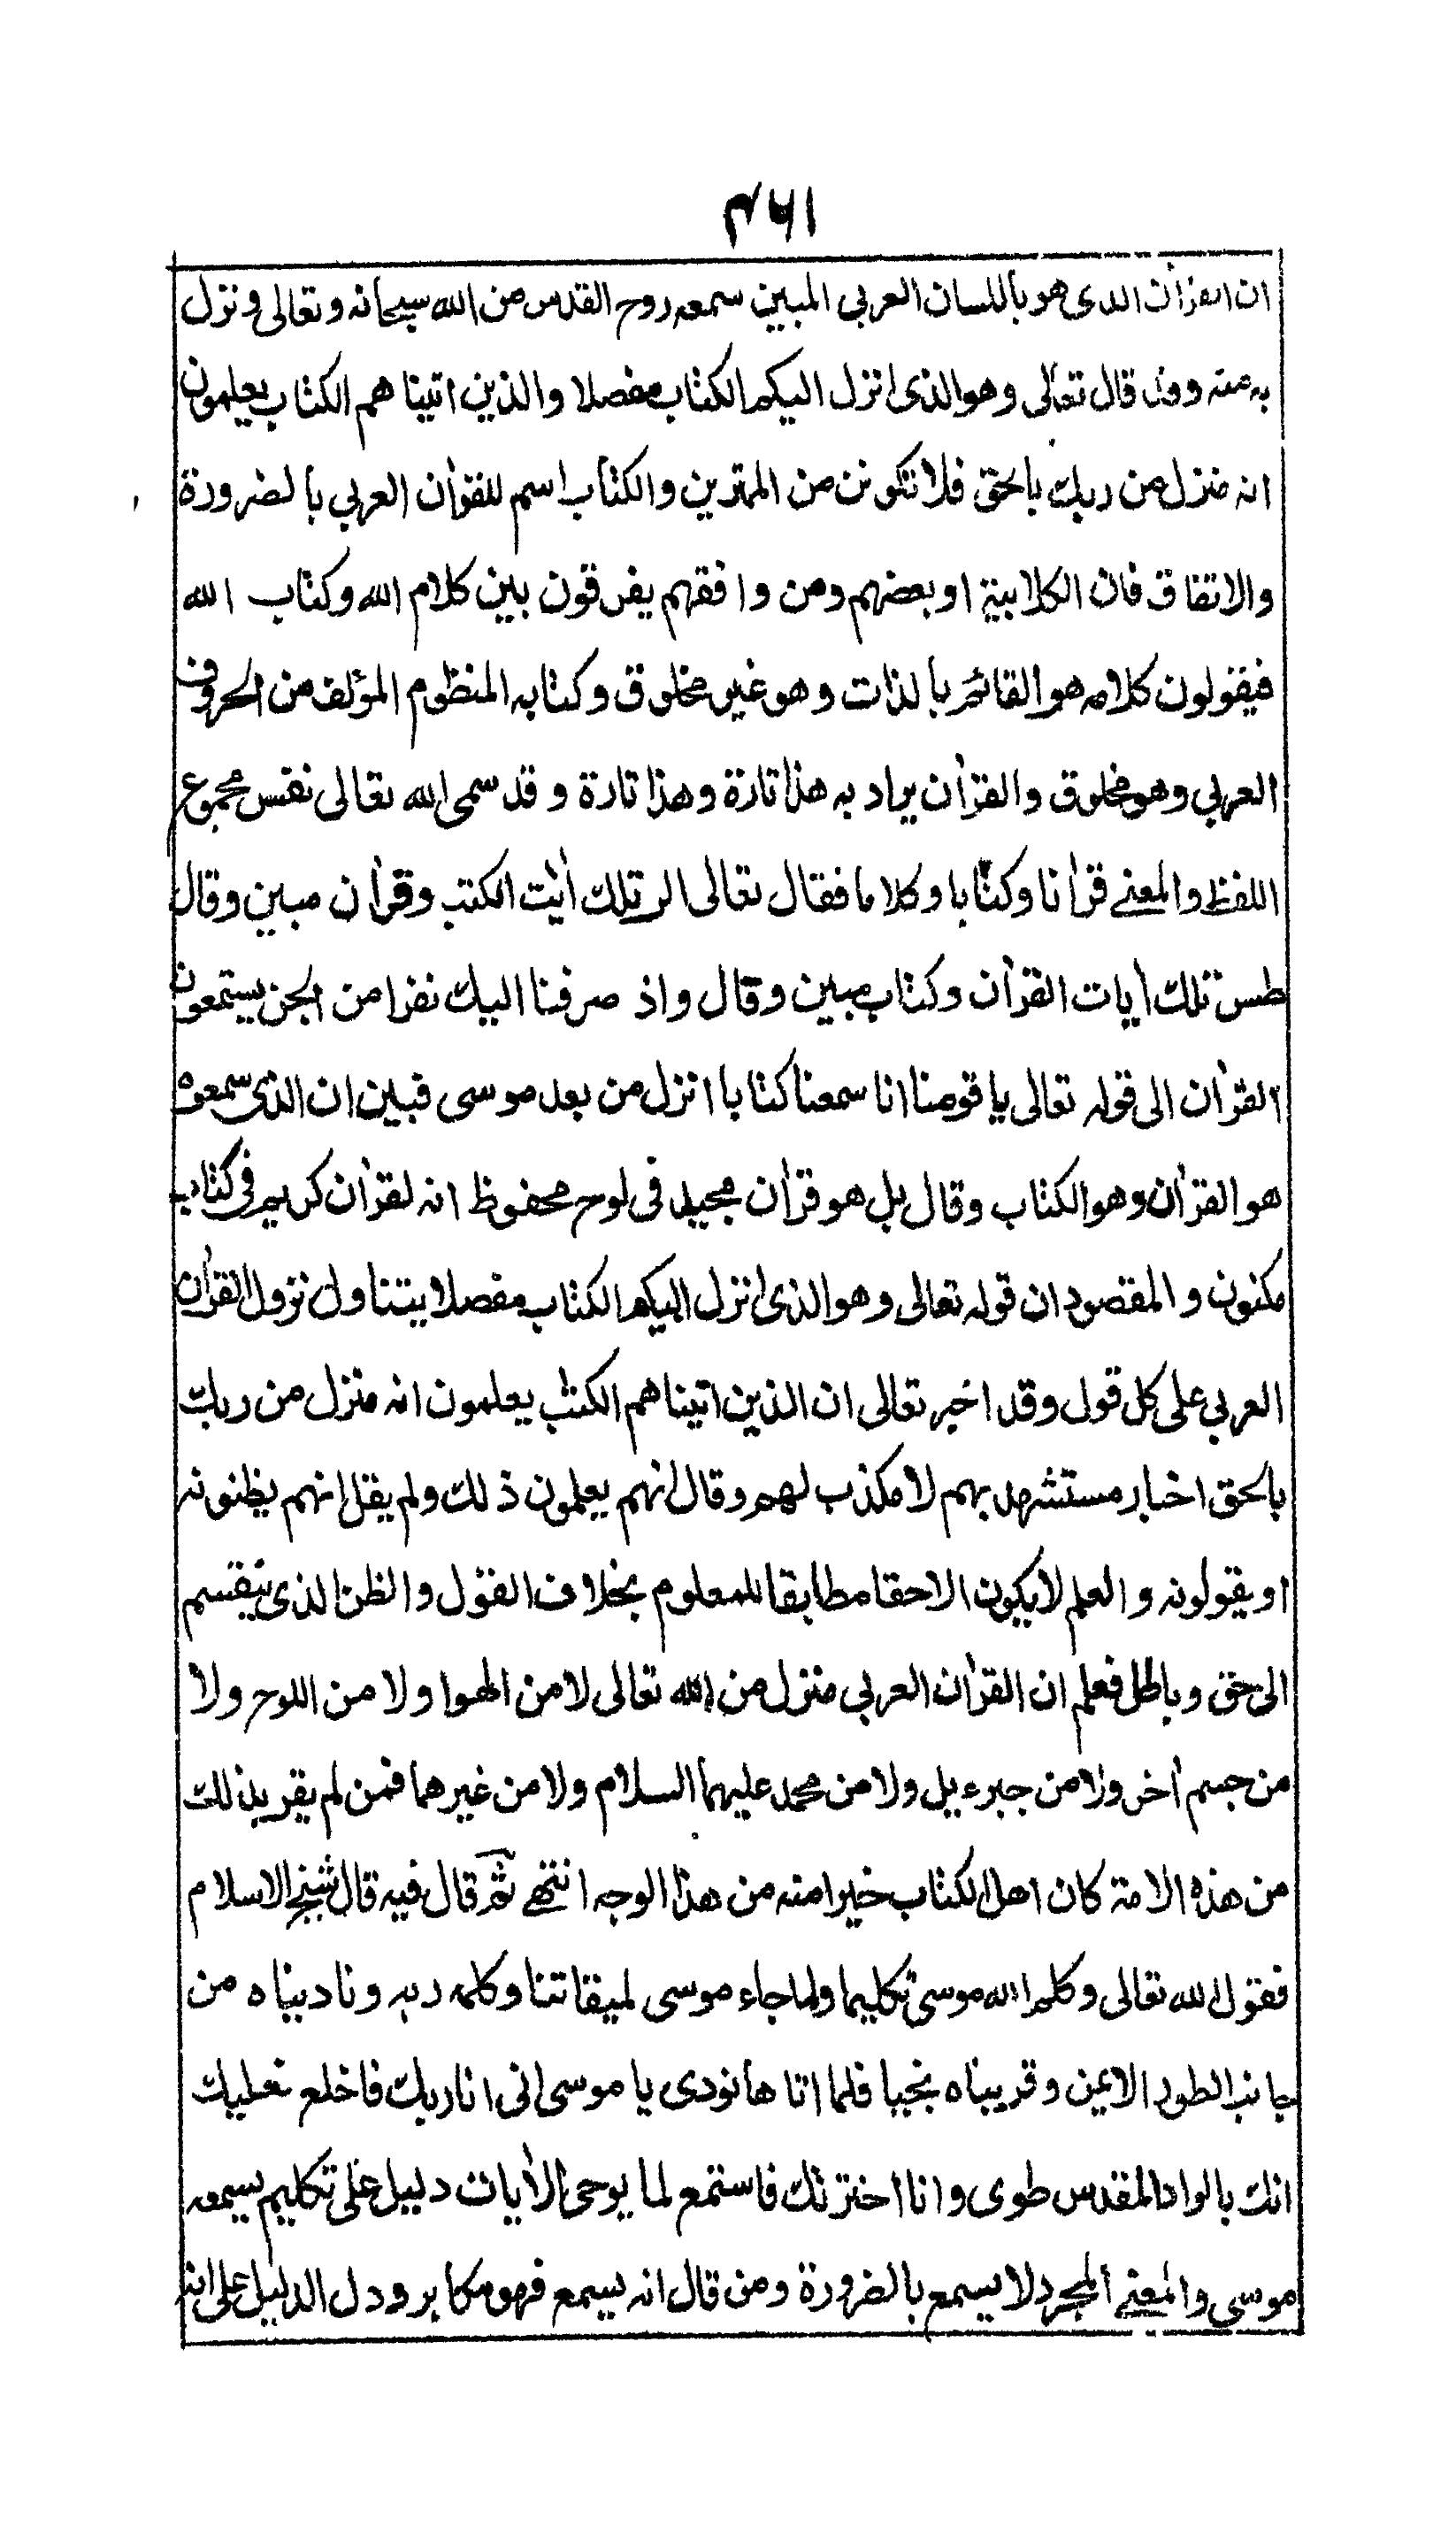 ١٥٤
ان القرآن الذى هو باللسان العربي المبين سمعه روح القدس من الله سبحانه وتعالى ونزل
به منه وقد قال تعالى وهو الذى انزل اليكم الكتاب مفصلا والذين اتينا هم الكتاب يعلمون
انه منزل من ربك بالحق فلا تكونن من الممترين والكتاب اسم للقرآن العربي بالضرورة
والاتفاق فان الكلابية او بعضهم ومن وافقهم يفرقون بين كلام الله وكتاب الله
فيقولون كلامه هو القائم بالذات وهو غير مخلوق وكتابه المنظوم المؤلف من الحروف
العربي وهو مخلوق والقرآن يراد به هذا تارة وهذا تارة وقد سمى الله تعالى نفس مجموع
اللفظ والمعنى قرآنا وكتابا وكلاما فقال تعالى الر تلك أيٰت الكتب وقرآن مبين وقال
طس تلك أيات القرآن وكتاب مبين وقال واذ صرفنا اليك نفرا من الجن يستمعون
القرآن الى قوله تعالى يا قومنا انا سمعنا كتابا انزل من بعد موسى فبين ان الذى سمعوه
هو القرآن وهو الكتاب وقال بل هو قرآن مجيد فى لوح محفوظ انه لقرآن كريم فى كتاب
مكنون والمقصود ان قوله تعالى وهو الذى انزل اليكم الكتاب مفصلا يتناول نزول القرآن
العربي على كل قول وقد اخبر تعالى ان الذين اتينا هم الكتٰب يعلمون انه منزل من ربك
بالحق اخبار مستشهد بهم لا مكذب لهم وقال انهم يعلمون ذلك ولم يقل انهم يظنونه
او يقولونه والعلم لا يكون الا حقا مطابقا للمعلوم بخلاف القول والظن الذى ينقسم
الى حق وباطل فعلم ان القرآن العربي منزل من الله تعالى لا من الهوا ولا من اللوح ولا
من جسم أخر ولا من جبرءيل ولا من محمد عليهما السلام ولا من غيرهما فمن لم يقر بذلك
من هذه الامة كان اهل الكتاب خيرا منه من هذا الوجه انتهى ثم قال فيه قال شيخ الاسلام
فقول الله تعالى وكلم الله موسى تكليما ولما جاء موسى لميقاتنا وكلمه ربه وناديناه من
جانب الطور الايمن وقربناه نجيا فلما اتا ها نودى يا موسى انى انا ربك فاخلع نعليك
انك بالواد المقدس طوى وانا اخترتك فاستمع لما يوحى الأيات دليل على تكليم يسمعه
موسى والمعنى المجرد لا يسمع بالضرورة ومن قال انه يسمع فهو مكابر ودل الدليل على انه